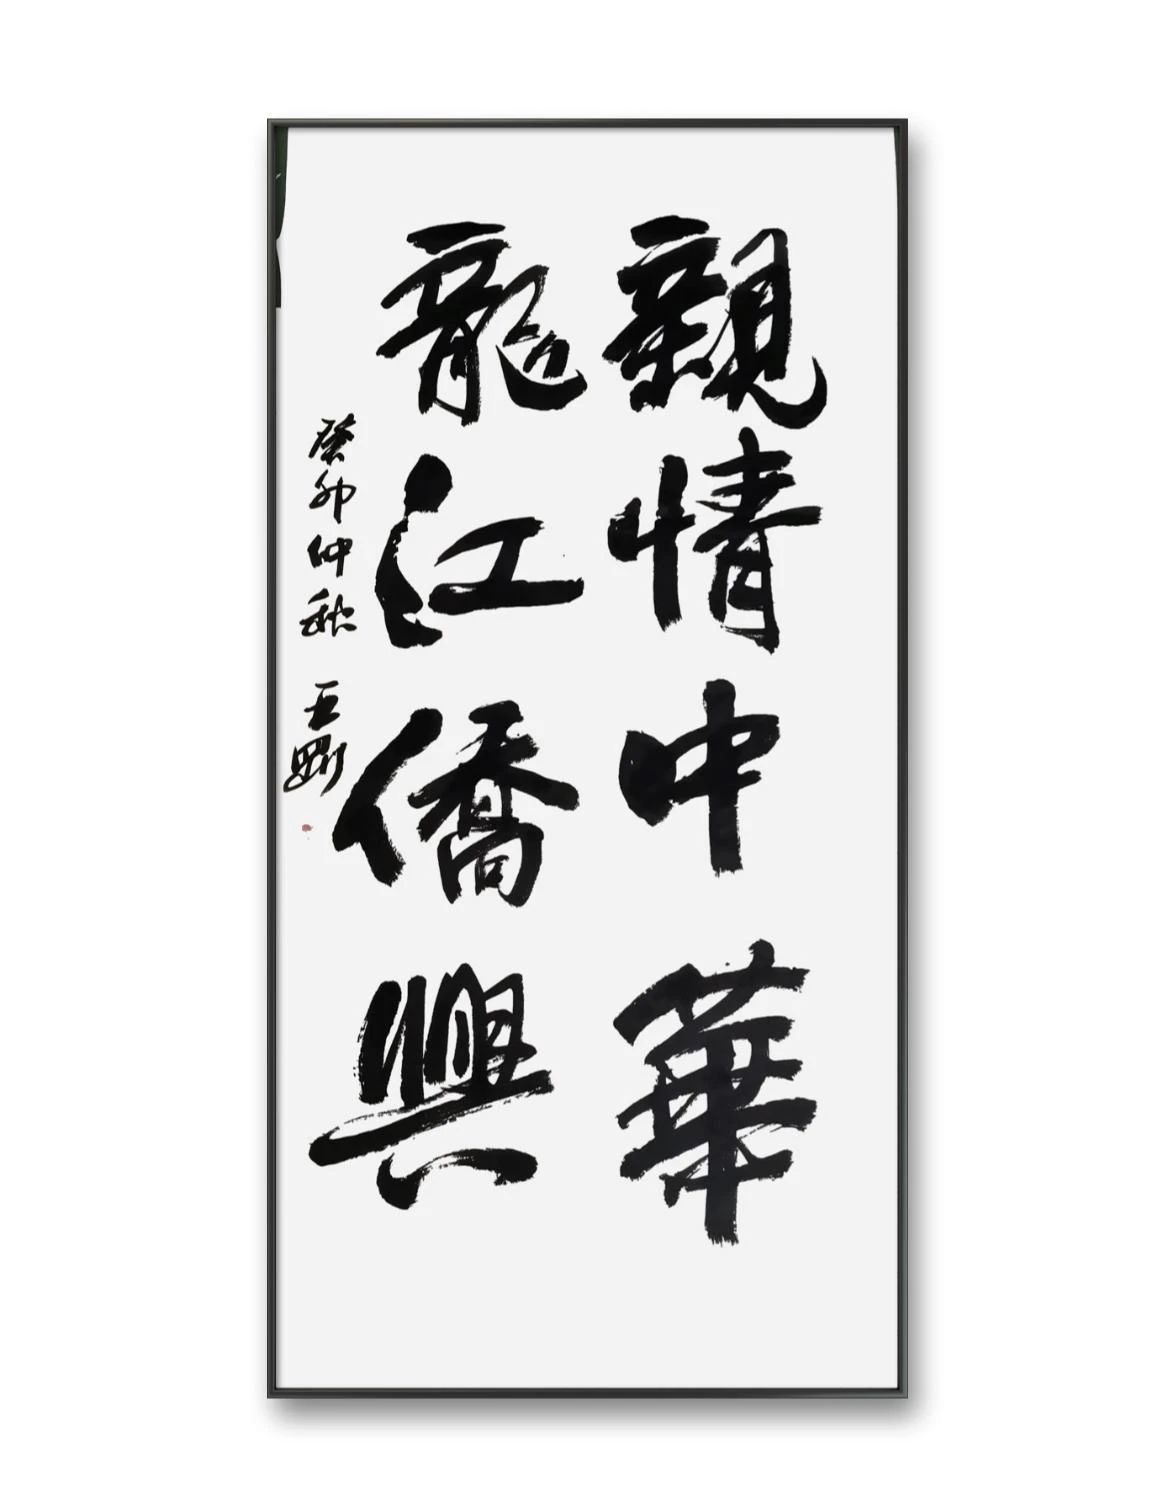 親情中華
龍江僑興
癸卯仲秋 王